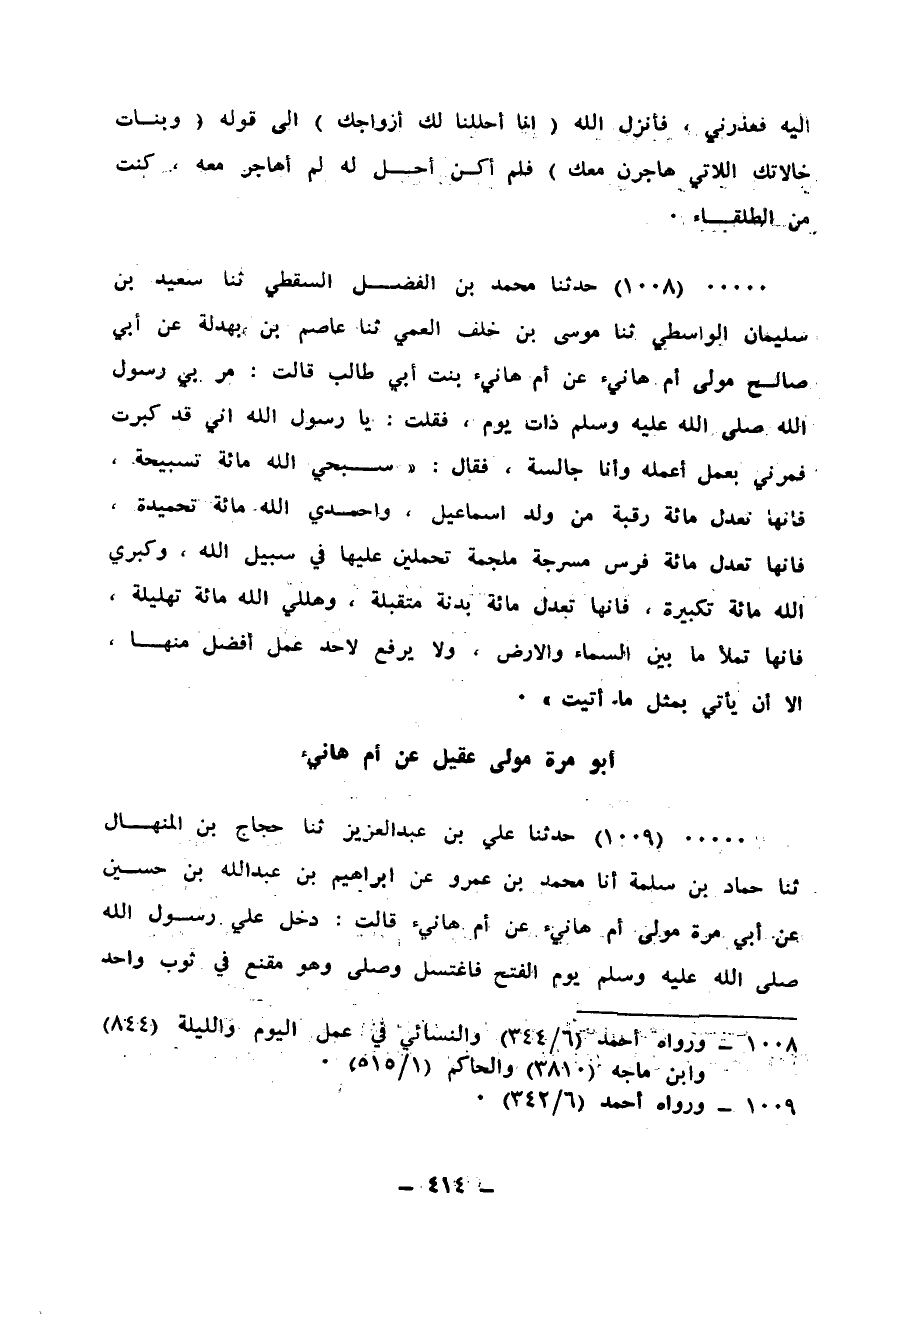 اليه فعذرني ، فأنزل الله ( انا أحللنا لك أزواجك ) الى قوله ( وبنـات
خالاتك اللاتي هاجرن معك ) فلم أكـن أحـــل له لم أهاجر معه ، كنت
من الطلقـــاء ٠
٠٠٠٠٠ (١٠٠٨) حدثنا محمد بن الفضـــل السقطي ثنا سعيد بن
سليمان الواسطي ثنا موسى بن خلف العمي ثنا عاصم بن بهدلة عن أبي
صالـح مولى أم هانيء عن أم هانيء بنت أبي طالب قالت : مر بي رسول
الله صلى الله عليه وسلم ذات يوم ، فقلت : يا رسول الله اني قد كبرت
فمرني بعمل أعمله وأنا جالسة ، فقال : « ســـبحي الله مائة تسبيحة ،
فانها تعدل مائة رقبة من ولد اسماعيل ، واحمـدي الله مائة تحميدة ،
فانها تعدل مائة فرس مسرجة ملجمة تحملين عليها في سبيل الله ، وكبري
الله مائة تكبيرة ، فانها تعدل مائة بدنة متقبلة ، وهللي الله مائة تهليلة ،
فانها تملأ ما بين السماء والارض ، ولا يرفع لاحد عمل أفضل منهـــا ،
الا أن يأتي بمثل ما أتيت » ٠
أبو مرة مولى عقيل عن أم هانيء
٠٠٠٠٠ (١٠٠٩) حدثنا علي بن عبدالعزيز ثنا حجاج بن المنهـــال
ثنا حماد بن سلمة أنا محمد بن عمرو عن ابراهيم بن عبدالله بن حســين
عن أبي مرة مولى أم هانيء عن أم هانيء قالت : دخل علي رسـول الله
صلى الله عليه وسلم يوم الفتح فاغتسل وصلى وهو مقنع في ثوب واحد
١٠٠٨ ـ ورواه أحمد (٣٤٤/٦) والنسائي في عمل اليوم والليلة (٨٤٤)
وابن ماجه (٣٨١٠) والحاكم (٥١٥/١) ٠
١٠٠٩ ـ ورواه أحمد (٣٤٢/٦) ٠
ـ ٤١٤ ـ